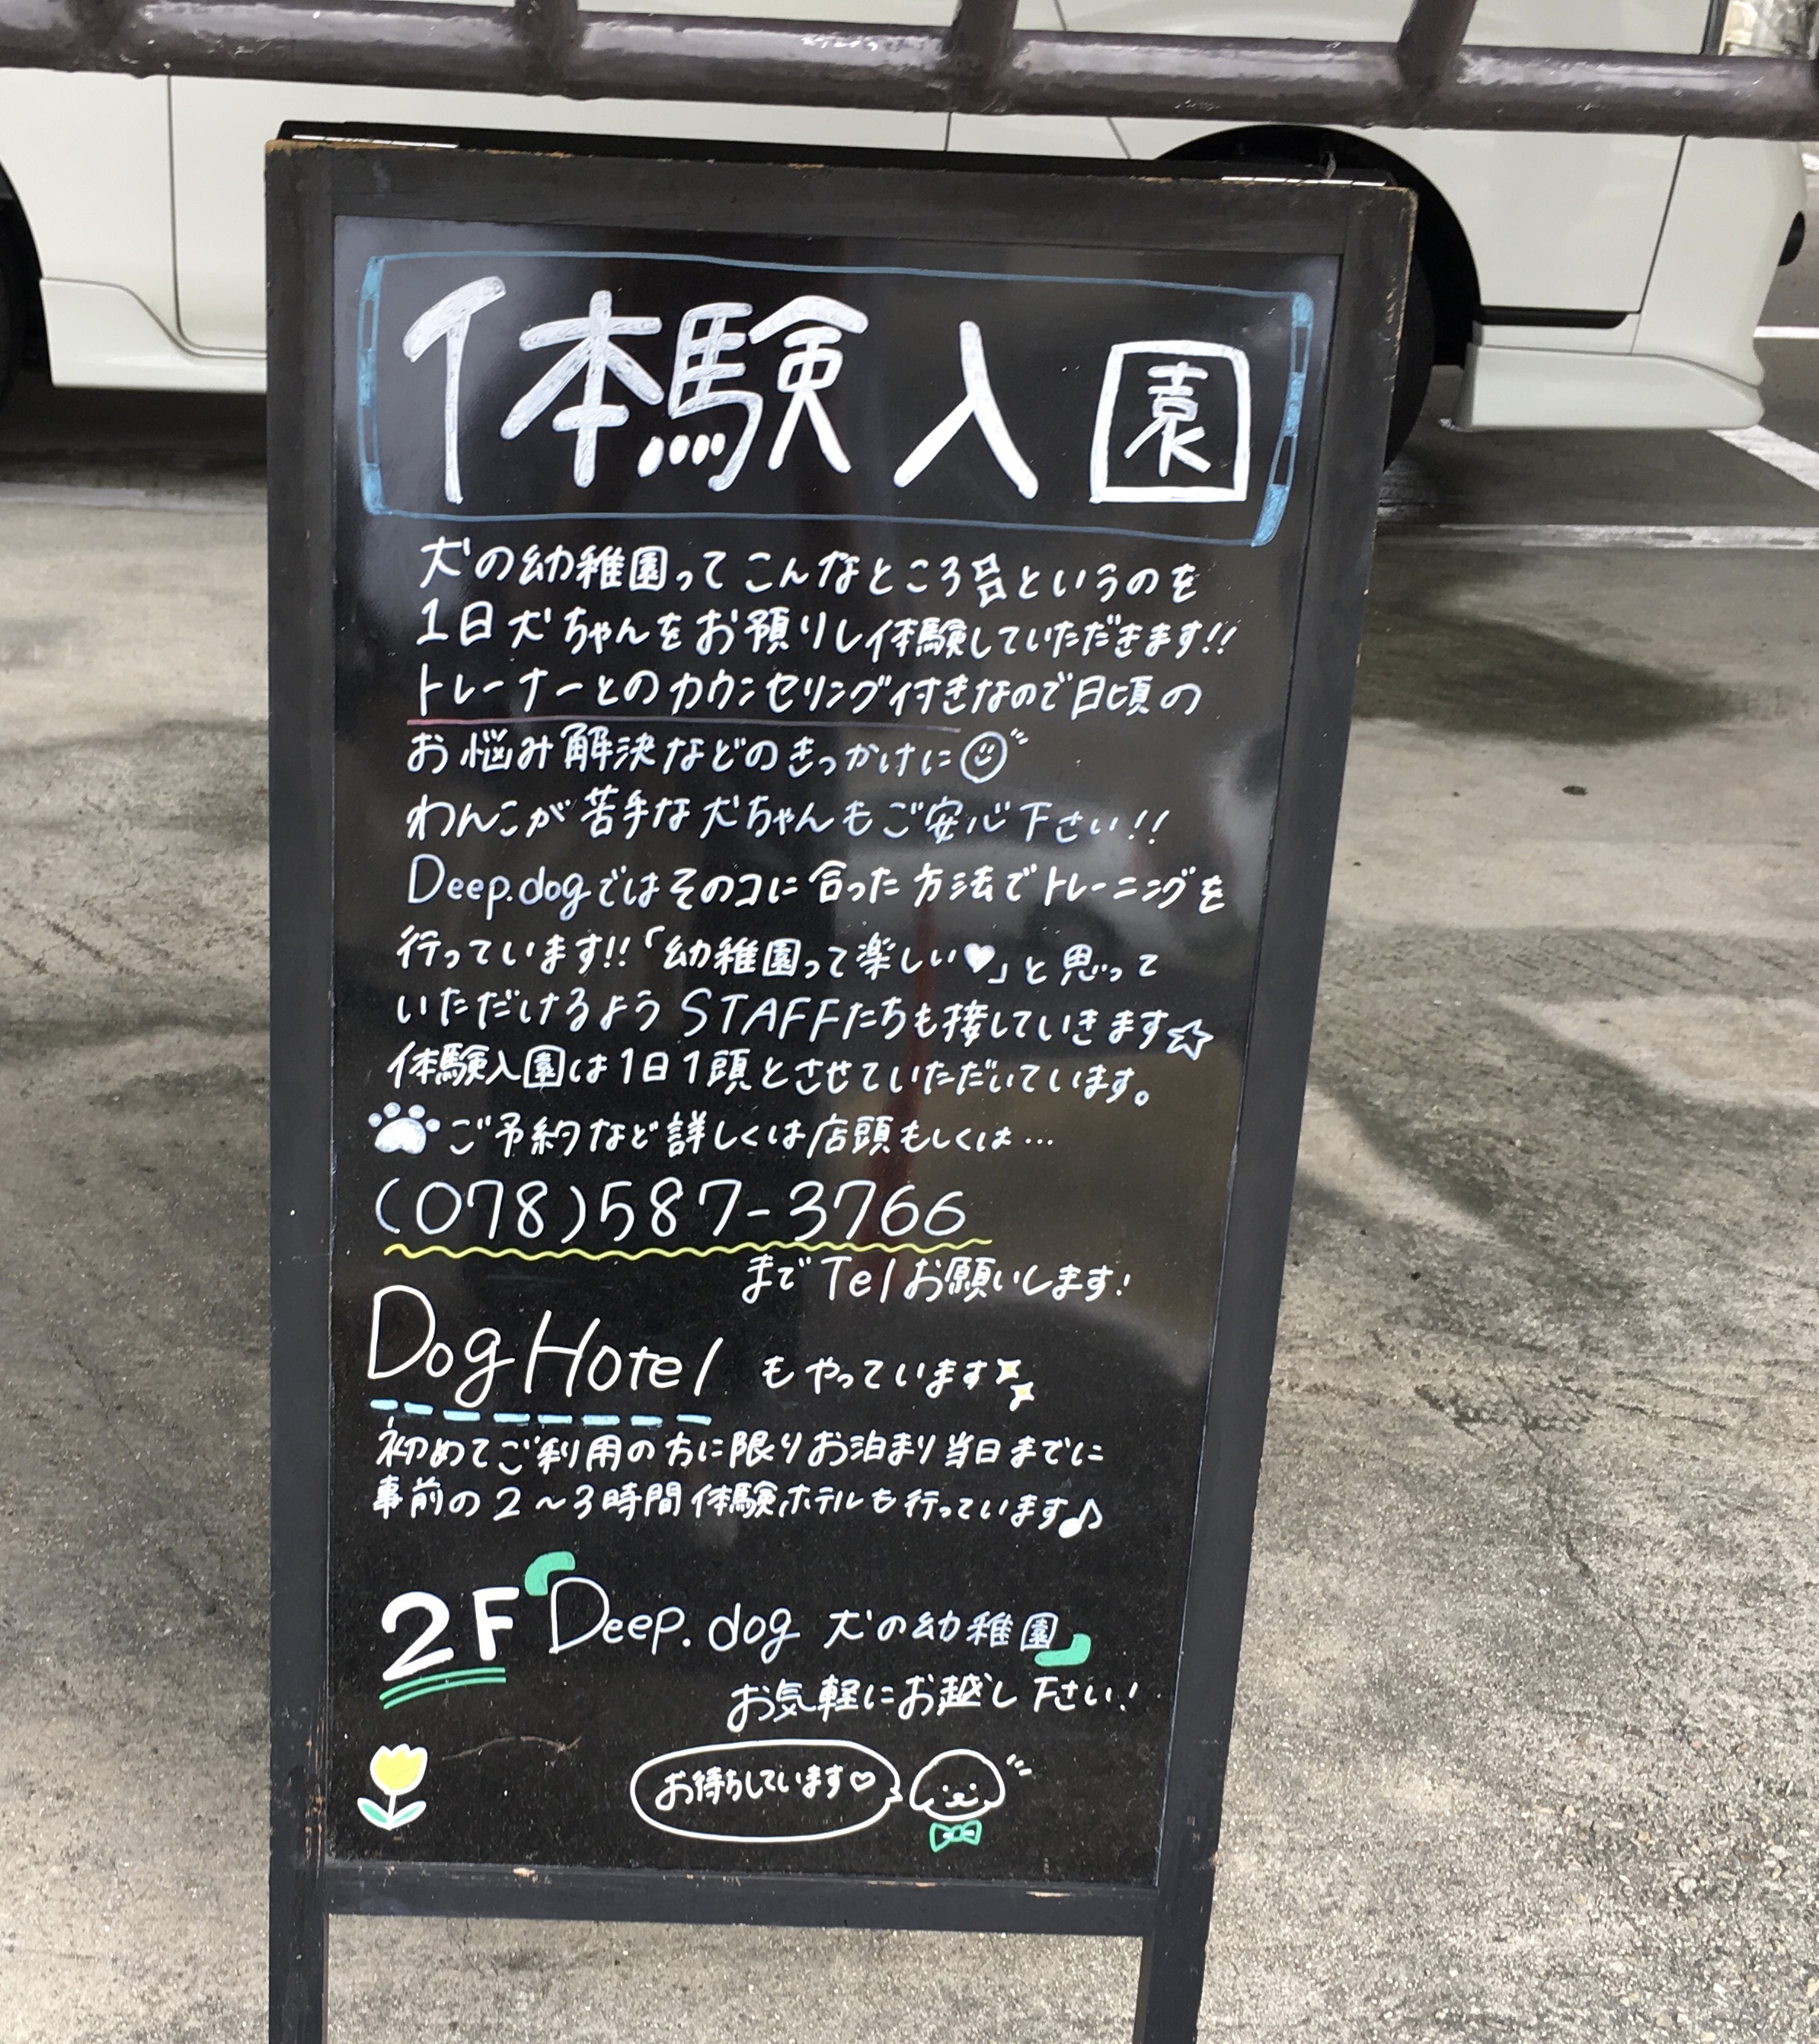 体験入園
犬の幼稚園ってこんなところ!!というのを
1日犬ちゃんをお預りし体験していただきます!!
トレーナーとのカウンセリング付きなので日頃の
お悩み解決などのきっかけに
わんこが苦手な犬ちゃんもご安心下さい!!
Deep.dogではそのコに合った方法でトレーニングを
行っています!!「幼稚園って楽しい♥」と思って
いただけるようSTAFFたちも接していきます☆
体験入園は1日1頭とさせていただいています。
ご予約など詳しくは店頭もしくは…
(078)587-3766
までTelお願いします!
Dog Hotel もやっています
初めてご利用の方に限りお泊まり当日までに
事前の2〜3時間体験ホテルも行っています♪
2F「Deep.dog 犬の幼稚園」
お気軽にお越し下さい!
お待ちしています♡